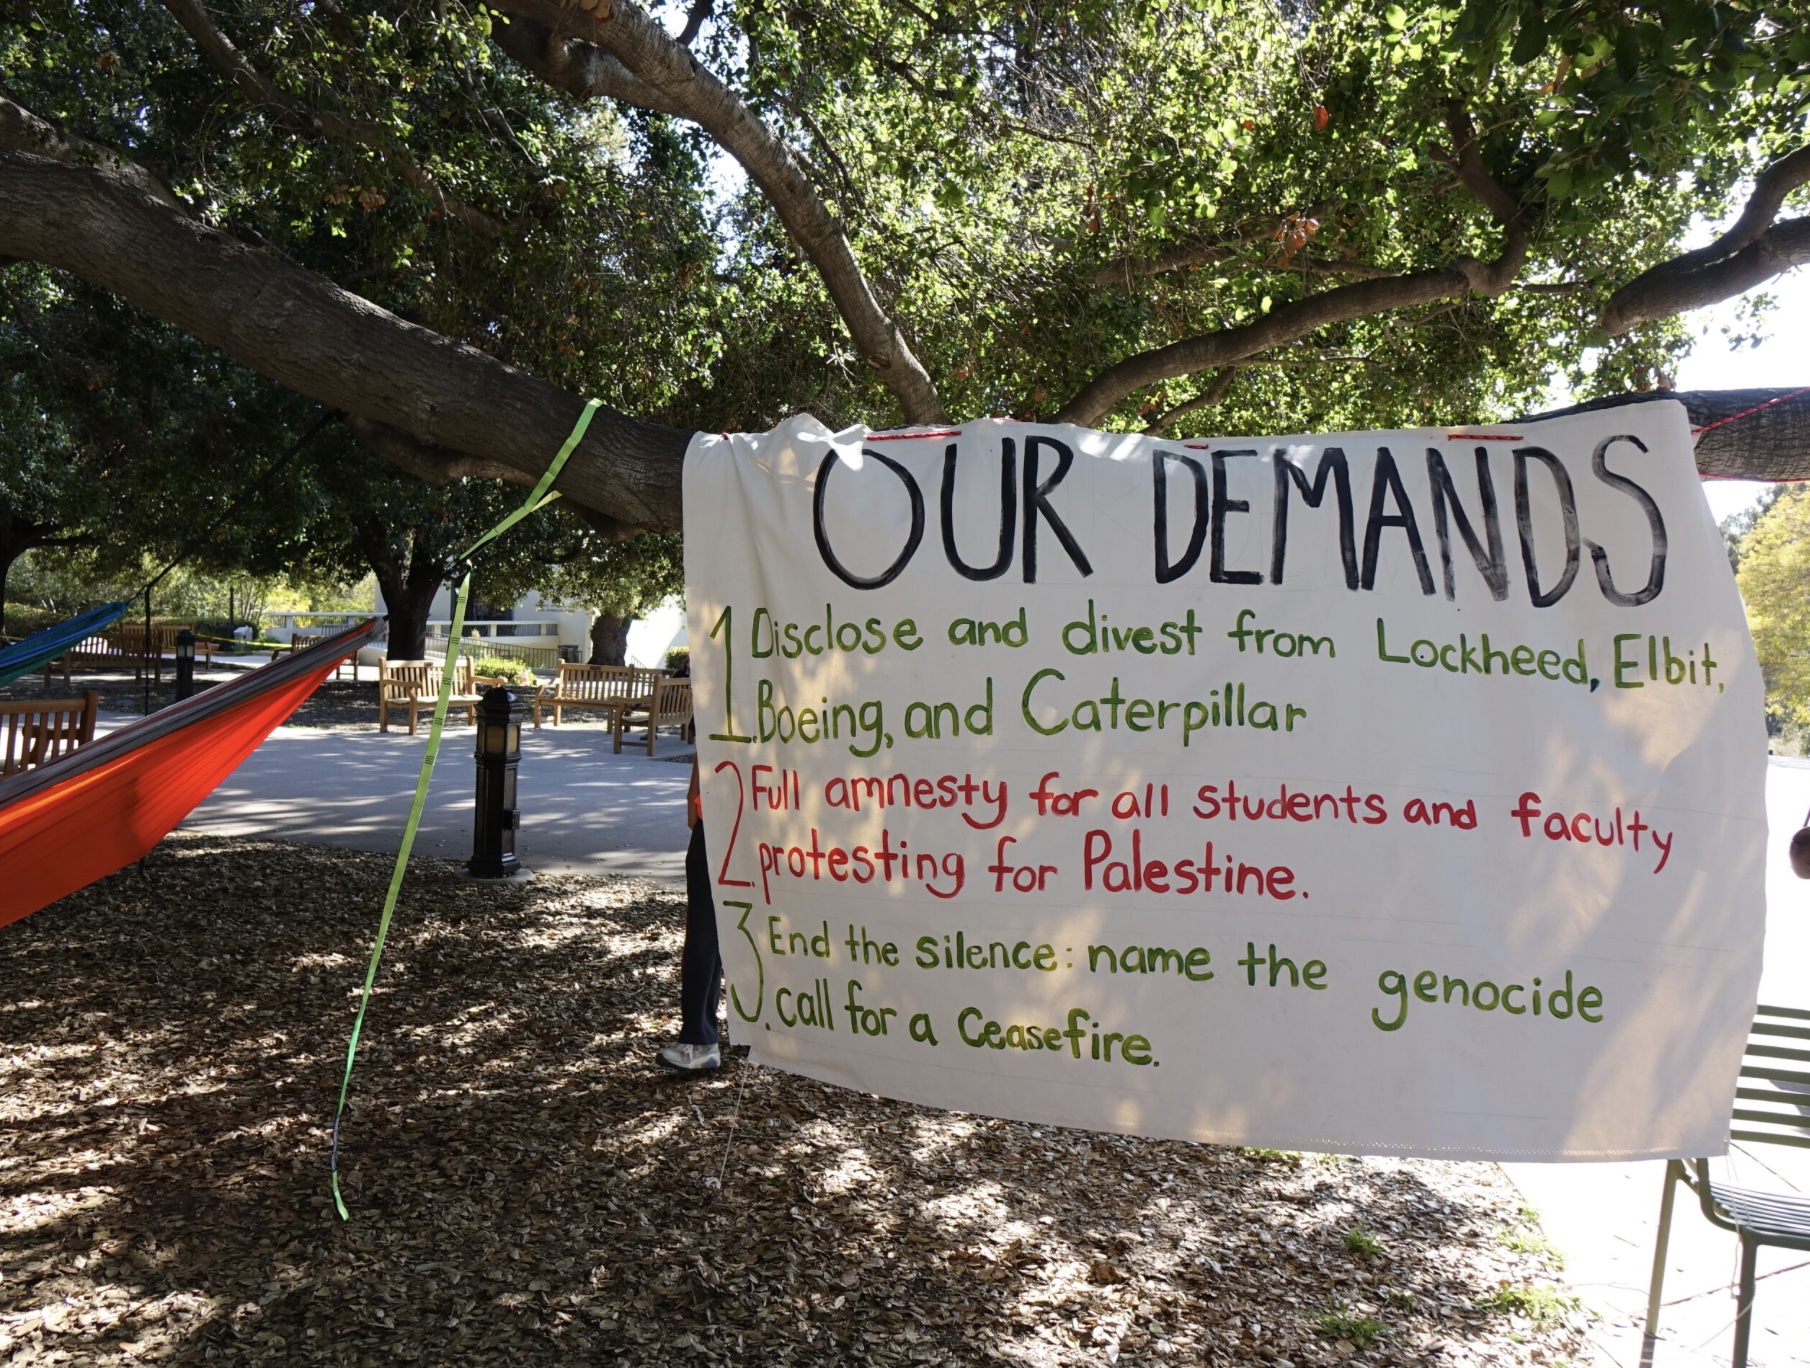 OUR DEMANDS
1. Disclose and divest from Lockheed, Elbit,
Boeing, and Caterpillar
2. Full amnesty for all students and faculty
protesting for Palestine.
3. End the silence: name the genocide
call for a Ceasefire.